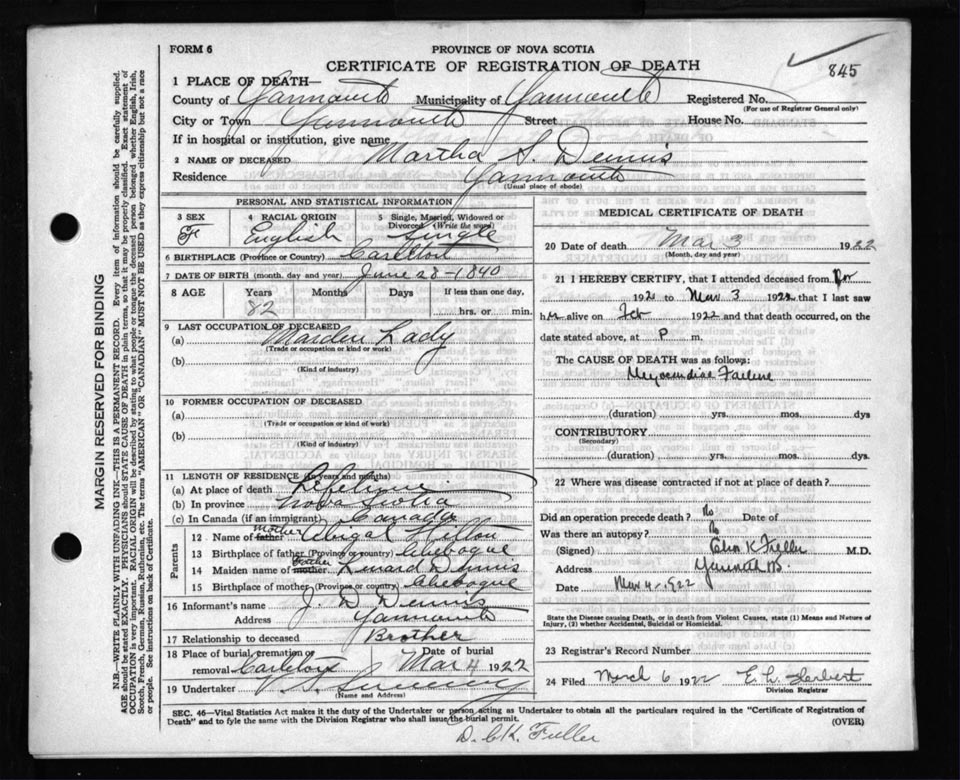 FORM 6
PROVINCE OF NOVA SCOTIA
CERTIFICATE OF REGISTRATION OF DEATH
845
1 PLACE OF DEATH—
County of Yarmouth Municipality of Yarmouth Registered No.
(For use of Registrar General only)
City or Town Yarmouth Street House No.
If in hospital or institution, give name
2 NAME OF DECEASED Martha S. Dennis
Residence Yarmouth
(Usual place of abode)
PERSONAL AND STATISTICAL INFORMATION
3 SEX
F
4 RACIAL ORIGIN
English
5 Single, Married, Widowed or Divorced (Write the word)
Single
6 BIRTHPLACE (Province or Country) Carleton
7 DATE OF BIRTH (month, day and year) June 28-1840
8 AGE Years Months Days If less than one day,
82 hrs. or min.
9 LAST OCCUPATION OF DECEASED
(a) Maiden Lady
(Trade or occupation or kind of work)
(b)
(Kind of industry)
10 FORMER OCCUPATION OF DECEASED
(a)
(Trade or occupation or kind of work)
(b)
(Kind of industry)
11 LENGTH OF RESIDENCE (in years and months)
(a) At place of death Lifetime
(b) In province Nova Scotia
(c) In Canada (if an immigrant) Canada
Parents
12 Name of father mother Abigal Hilton
13 Birthplace of father (Province or country) Chebogue
14 Maiden name of mother father Dennis
15 Birthplace of mother (Province or country) Chebogue
16 Informant's name J. D. Dennis
Address Yarmouth
17 Relationship to deceased Brother
18 Place of burial, cremation or removal Carleton
Date of burial Mar 4 1922
19 Undertaker
(Name and Address)
MEDICAL CERTIFICATE OF DEATH
20 Date of death Mar 3 1922
(Month, day and year)
21 I HEREBY CERTIFY, that I attended deceased from Nov
1921 to Mar 3 1922 that I last saw
her alive on Feb 1922 and that death occurred, on the
date stated above, at P m.
The CAUSE OF DEATH was as follows:
Myocardial Failure
(duration) yrs. mos. dys
CONTRIBUTORY
(Secondary)
(duration) yrs. mos. dys.
22 Where was disease contracted if not at place of death?
Did an operation precede death? No Date of
Was there an autopsy? No
(Signed) Chas K Fuller M.D.
Address Yarmouth NS.
Date Mar 4, 1922
State the Disease causing Death, or in death from Violent Causes, state (1) Means and Nature of Injury, (2) whether Accidental, Suicidal or Homicidal.
23 Registrar's Record Number
24 Filed March 6 1922 E. L. Harbert
Division Registrar
SEC. 46—Vital Statistics Act makes it the duty of the Undertaker or person acting as Undertaker to obtain all the particulars required in the "Certificate of Registration of
Death" and to fyle the same with the Division Registrar who shall issue the burial permit.
(OVER)
D. C K. Fuller
MARGIN RESERVED FOR BINDING
N.B.—WRITE PLAINLY WITH UNFADING INK—THIS IS A PERMANENT RECORD. Every item of information should be carefully supplied.
AGE should be stated EXACTLY. PHYSICIANS should STATE CAUSE OF DEATH in plain terms, so that it may be properly classified. Exact statement of
OCCUPATION is very important. RACIAL ORIGIN will be described by stating to what people or tongue the deceased person belonged whether English, Irish,
Scotch, French, German, Russian, Ruthenian, etc. The terms "AMERICAN" or "CANADIAN" MUST NOT BE USED as they express citizenship but not a race
or people. See instructions on back of Certificate.